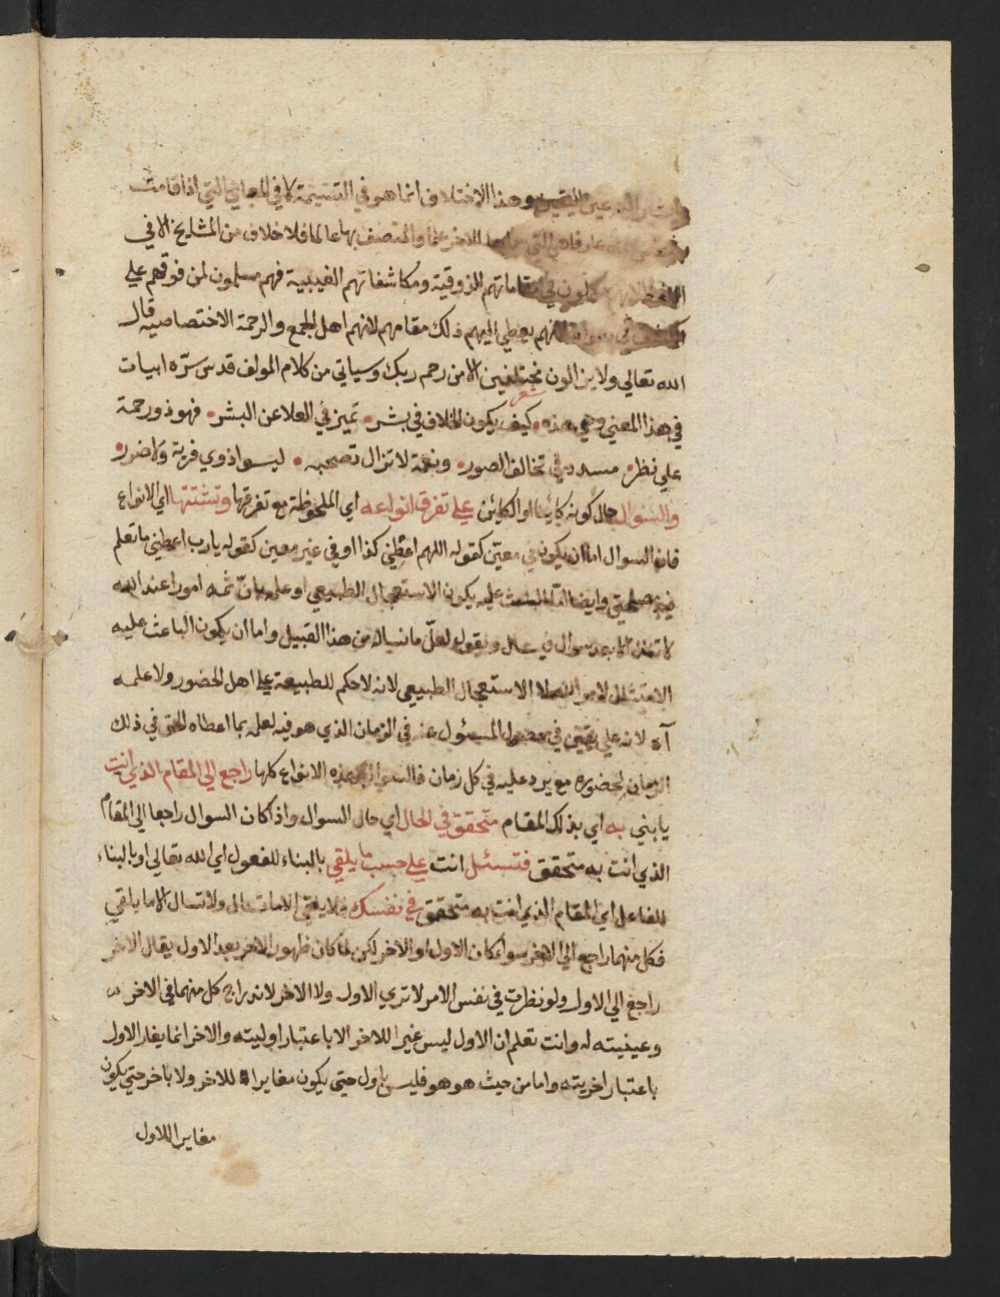 عين اليقين وهذا الاختلاف انما هو في التسمية لا في المعاني التي اذا قامت
الاخر عالما والمتصف بها عالما فلا خلاف من المشايخ الا في
في مقاماتهم الذوقية ومكاشفاتهم الغيبية فهم مسلمون لمن فوقهم علي
لانهم يعطي اليهم ذلك مقامهم لانهم اهل الجمع والرحمة الاختصاصيه قال
الله تعالي ولا يزالون مختلفين الا من رحم ربك وسياتي من كلام المولف قدس سره ابيات
في هذا المعني وهي هذه شعر كيف يكون الخلاف في بشر تميز في العلا عن البشر فهو ذو رحمة
علي نظر مسدد في تخالف الصور ونعمة لا تزال تصحبه ليسوا ذوي فرية ولا ضرر
والسوال حال كونه كاينا او الكاين علي تفرق انواعه اي الملحوظة مع تفرقها وتشتتها الي الانواع
فان السوال اما ان يكون في معين كقوله اللهم اعطني كذا او في غير معين كقوله يا رب اعطني ما تعلم
فيه مصلحتي وايضا عليه يكون الاستعجال الطبيعي او علمه بان ثمه امورا عند الله
لا تنال الا بعد سوال ويقول لعل ما نساله من هذا القبيل واما ان يكون الباعث عليه
الامتثال لامر الاستعجال الطبيعي لانه لا حكم للطبيعة علي اهل الحضور ولا علمه
لانه علي يقين في حصول المسئول عنه في الزمان الذي هو فيه لعلمه بما اعطاه الحق في ذلك
الزمان لحضوره مع يرد عليه في كل زمان فالسوال بهذه الانواع كلها راجع الي المقام الذي انت
يا بني به اي بذلك المقام متحقق في الحال اي حال السوال واذ كان السوال راجعا الي المقام
الذي انت به متحقق فتسئل انت علي حسب ما يلقي بالبناء للمفعول اي الله تعالي او بالبناء
للفاعل اي المقام الذي انت به متحقق في نفسك فلا يلقي الا ما تسال ولا تسال الا ما يلقي
فكل منهما راجع الي الاخر سواء كان الاول او الاخر لكن لما كان ظهور الاخر بعد الاول يقال الاخر
راجع الي الاول ولو نظرت في نفس الامر لا تري الاول ولا الاخر لاندراج كل منهما في الاخر
وعينيته له وانت تعلم ان الاول ليس غير اللاخر الا باعتبار اوليته والاخر انما يغاير الاول
باعتبار اخريته واما من حيث هو هو فليس باول حتي يكون مغايرا للاخر ولا باخر حتي يكون
مغايرا للاول